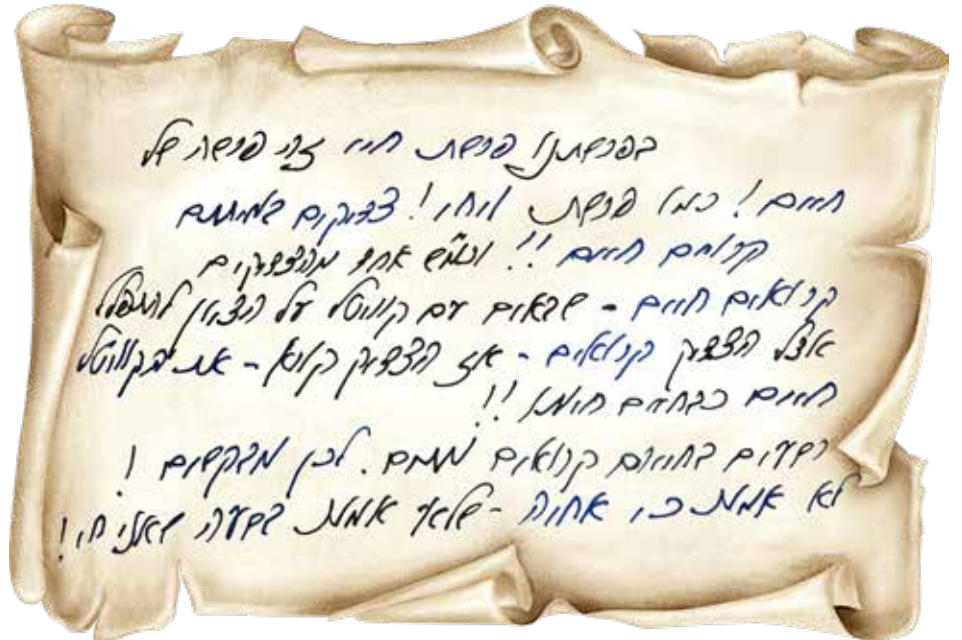 בפרשתנו פרשת חיי זהי פרשה של
חיים! כמו פרשת ויחי! צדיקים במיתתם
קרויים חיים!! וכמ"ש אחד מהצדיקים
קרואים חיים - שבאים עם קוויטל על הציון להתפלל
אצל הצדיק קרואים - אז הצדיק קורא - את הקוויטל
חיים כבחיים חיותו!!
רשעים בחייהם קרואים מתים. לכן מבקשים!
לא אמות כי אחיה - שלא אמות בשעה שאני חי!